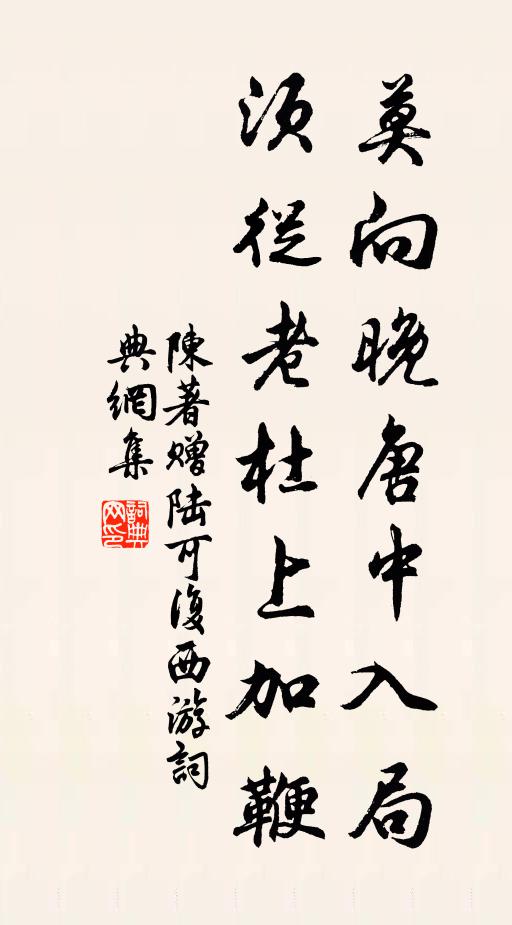 莫向晚唐中入局
須從老杜上加鞭
陳著贈陸可復西游詞
典網集
詞典网印